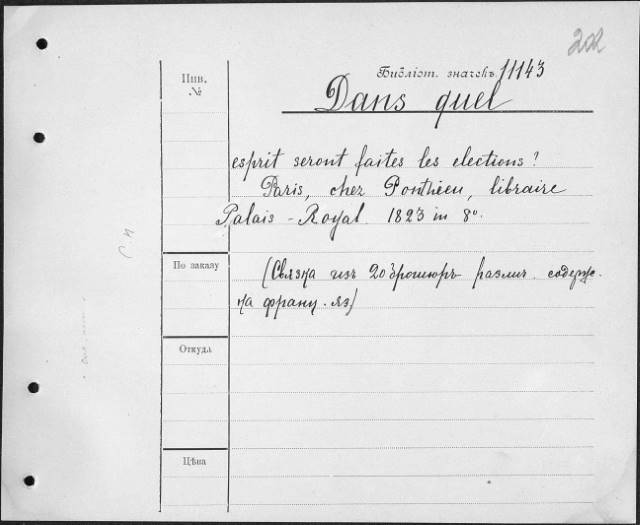 202
Библіот. значекъ 11143
Инв.
№
Dans quel
esprit seront faites les elections?
Paris, chez Ponthieu, libraire
Palais-Royal. 1823 in 8º.
По заказу
(Связка изъ 20 брошюръ различ. содерж.
на франц. яз)
Откуда
Цѣна